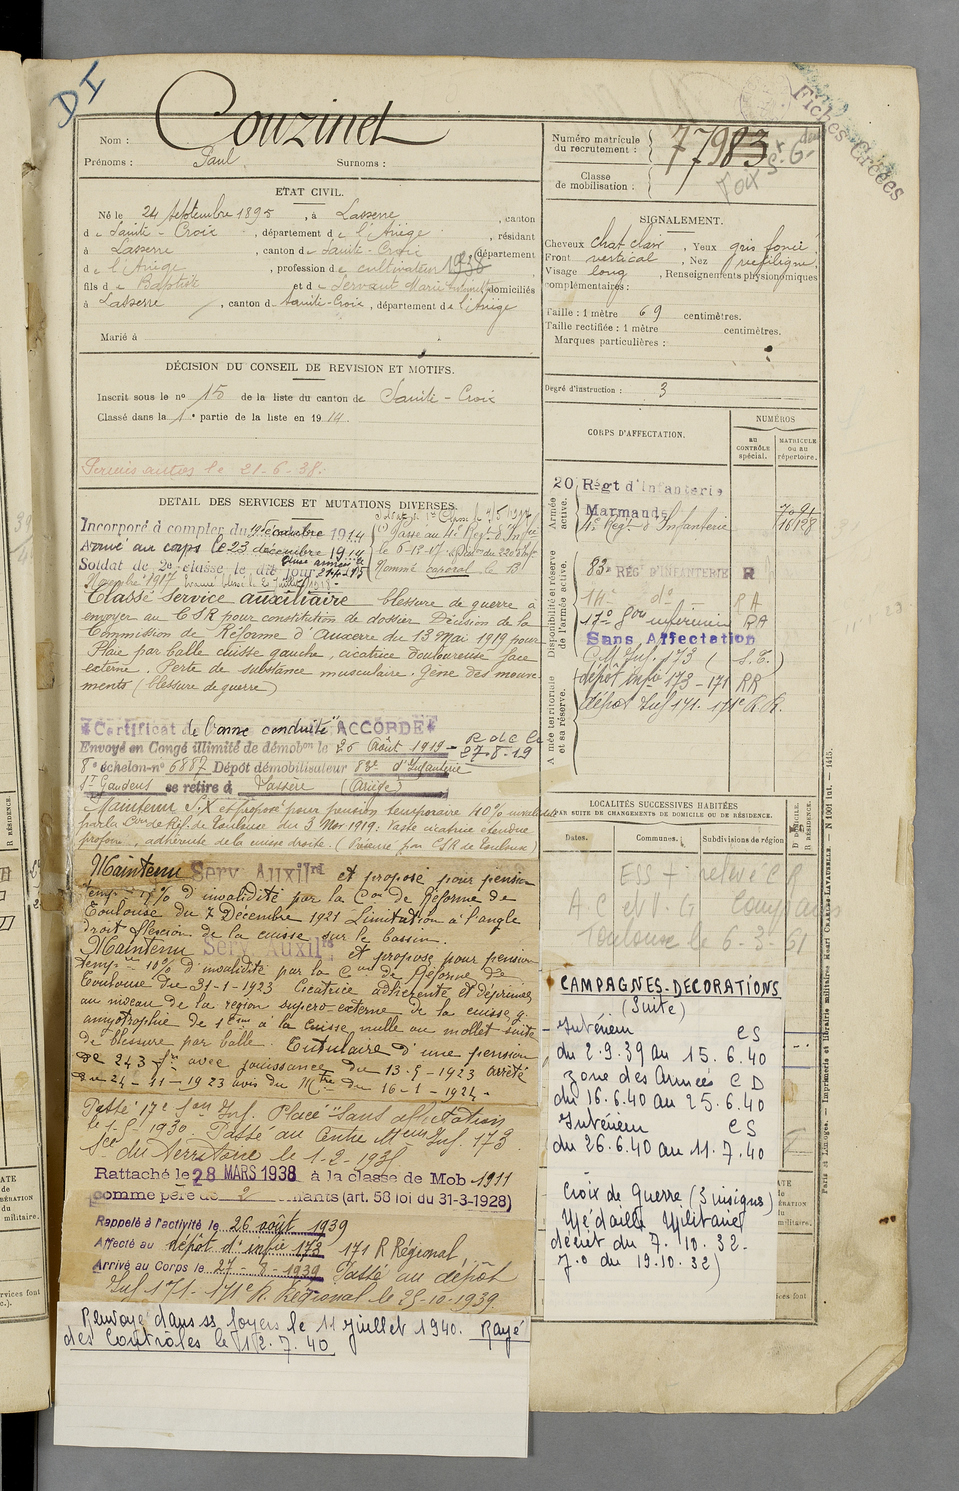 DI
Fiches Créées
Nom : Couzinet
Prénoms : Paul Surnoms :
ETAT CIVIL.
Né le 24 Septembre 1895, à Lasserre, canton
de Sainte-Croix, département de l'Ariège, résidant
à Lasserre, canton de Sainte-Croix, département
de l'Ariège, profession de cultivateur 1938
fils de Baptiste et de Servant Marie domiciliés
à Lasserre, canton de Sainte-Croix, département de l'Ariège
Marié à
DÉCISION DU CONSEIL DE REVISION ET MOTIFS.
Inscrit sous le n° 15 de la liste du canton de Sainte-Croix
Classé dans la 1e partie de la liste en 1914.
le 21-6-38.
DÉTAIL DES SERVICES ET MUTATIONS DIVERSES.
Incorporé à compter du 1914
Arrivé au corps le 23 décembre 1914
Soldat de 2e classe le dit jour
Passé au 4e Rég. d'Inf
le 6-13-17
Nommé caporal le 13
Novembre 1917
Classé Service auxiliaire blessure de guerre à
envoyer au CSR pour constitution de dossier Décision de la
Commission de Réforme d'Auxerre du 13 Mai 1919 pour
Plaie par balle cuisse gauche, cicatrice douloureuse face
externe. Perte de substance musculaire. Gêne des mouve-
ments (blessure de guerre)
"Certificat de bonne conduite" ACCORDÉ
Envoyé en Congé illimité de démobon le 26 Août 1919 - R d C le
27-8-19
8e échelon-n° 6887 Dépôt démobilisateur 83e d'Infanterie
St Gaudens se retire à Lasserre (Ariège)
Maintenu S.X et proposé pour pension temporaire 40% invalidité
par la Con de Réf. de Toulouse du 3 Nov 1919. Vaste cicatrice étendue
profonde, adhérente de la cuisse droite. (Présenté par CSR de Toulouse)
Maintenu Serv Auxilre et proposé pour pension
temp. 15% d'invalidité par la Con de Réforme de
Toulouse du 7 Décembre 1921 Limitation à l'angle
droit flexion de la cuisse sur le bassin.
Maintenu Serv Auxilre et proposé pour pension
temp. 10% d'invalidité par la Con de Réforme de
Toulouse du 31-1-1923 Cicatrice adhérente et déprimée
au niveau de la région supero-externe de la cuisse g.
amyotrophie de 1cm à la cuisse, nulle au mollet suite
de blessure par balle. Titulaire d'une pension
de 243 frs avec jouissance du 13-5-1923 arrêté
du 24-11-1923 avis du Mtre du 16-1-1924.
Passé 17e Son Inf. Placé "Sans affectation"
le 1-5-1930. Passé au Centre Mon Inf. 173
du Territoire le 1-2-193
Rattaché le 28 MARS 1938 à la classe de Mob 1911
comme père de 2 enfants (art. 58 loi du 31-3-1928)
Rappelé à l'activité le 26 août 1939
Affecté au dépôt d'infie 173 171 R Régional
Arrivé au Corps le 27-8-1939 Passé au dépôt
Inf 171-171e R. Régional le 25-10-1939.
Renvoyé dans ss foyers le 11 juillet 1940. Rayé
des Contrôles le 12.7.40
Numéro matricule du recrutement : 77983
Classe de mobilisation :
SIGNALEMENT.
Cheveux chat clair, Yeux gris foncé
Front vertical, Nez rectiligne
Visage long, Renseignements physionomiques
complémentaires :
Taille : 1 mètre 69 centimètres.
Taille rectifiée : 1 mètre centimètres.
Marques particulières :
Degré d'instruction : 3
CORPS D'AFFECTATION.
NUMÉROS
AU CONTRÔLE spécial.
MATRICULE OU AU répertoire.
Armée active.
20 Régt d'Infanterie
Marmande 7091
4e Régt d'Infanterie 16128
Disponibilité et réserve de l'armée active.
83e RÉG. D'INFANTERIE R
14e do RA
17e Son infirmiers RA
Sans Affectation
C.M. Inf. 173 (S.T.)
dépôt infie 173-171 RR
dépôt Inf 171-171e R.R.
Armée territoriale et sa réserve.
LOCALITÉS SUCCESSIVES HABITÉES
PAR SUITE DE CHANGEMENTS DE DOMICILE OU DE RÉSIDENCE.
Dates. Communes. Subdivisions de région
D DOMICILE R RÉSIDENCE.
ESS + relevé CR
A.C et V.G
Toulouse le 6-3-61
CAMPAGNES-DECORATIONS
(Suite)
Intérieur CS
du 2.9.39 au 15.6.40
zone des Armées CD
du 16.6.40 au 25.6.40
Intérieur CS
du 26.6.40 au 11.7.40
Croix de Guerre (3 insignes)
Médaille Militaire
décret du 7.10.32.
J.O du 19.10.32)
Paris et Limoges. — Imprimerie et librairie militaires Henri CHARLES-LAVAUZELLE. — N° 1001 int. — 1415.